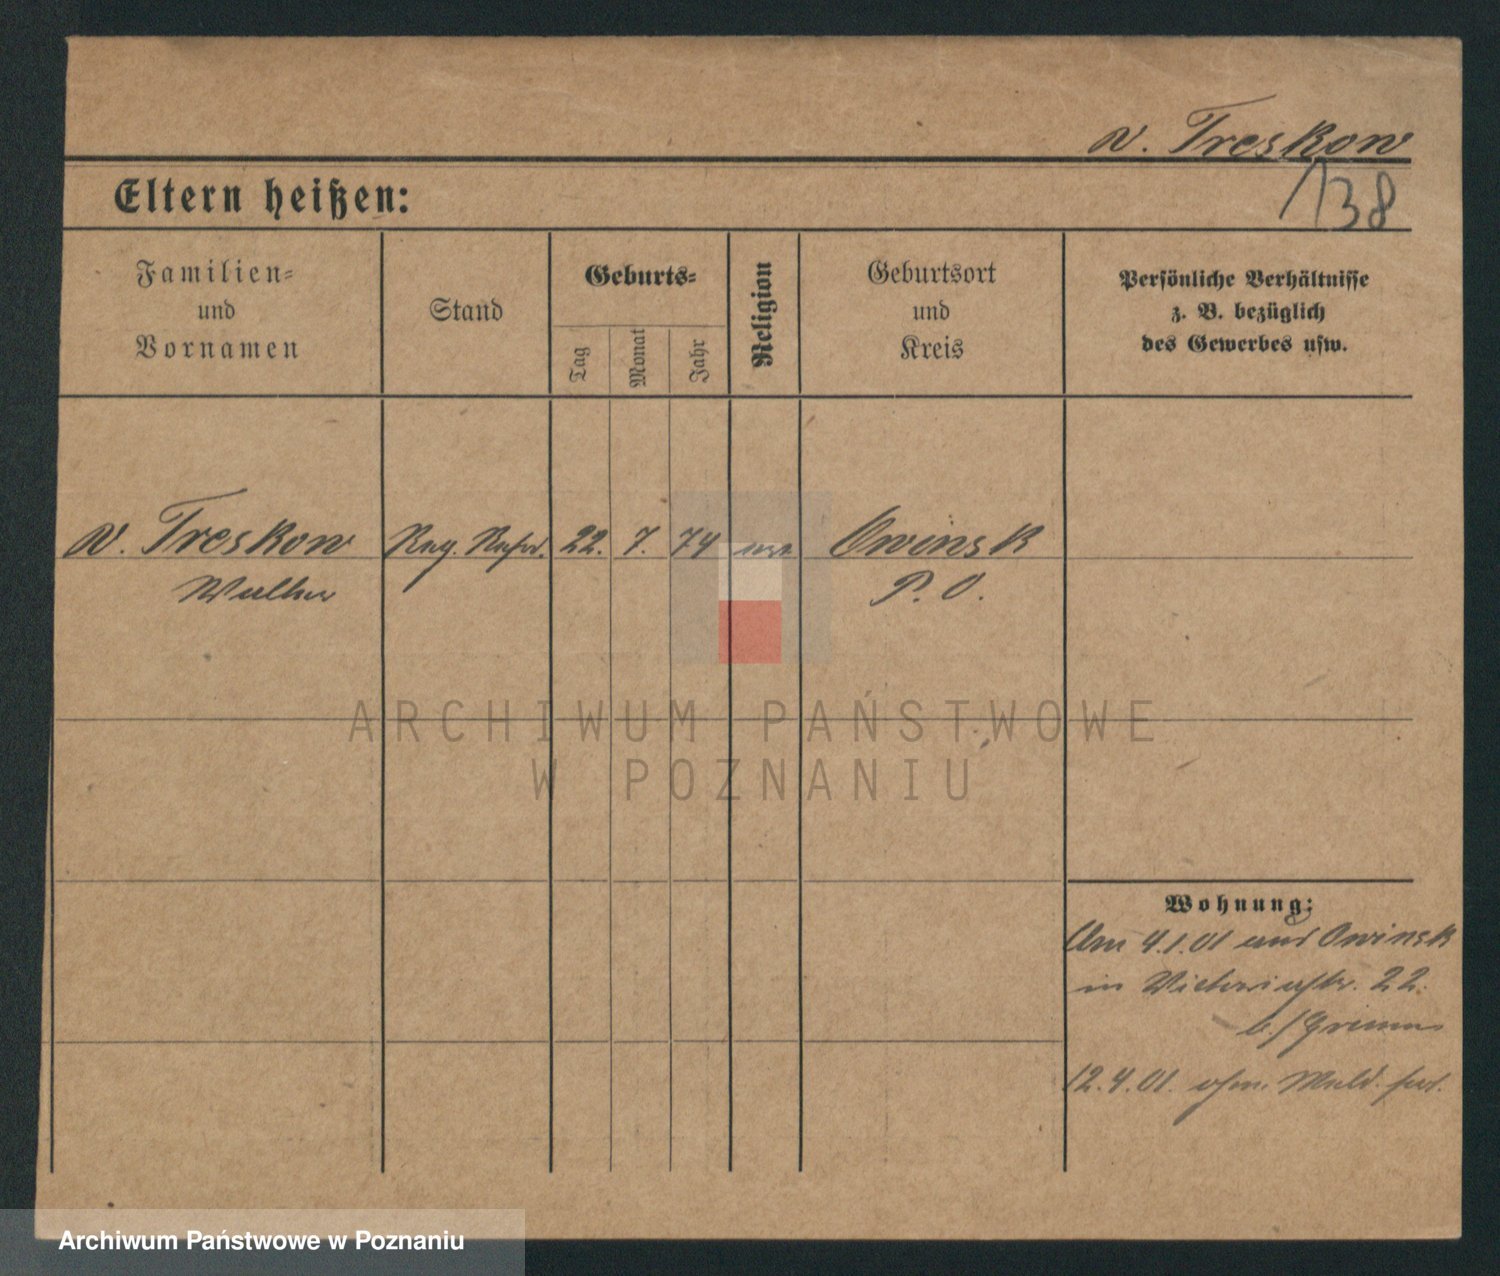 v. Treskow
138
Eltern heißen:
Familien-
und
Vornamen
Stand
Geburts-
Tag
Monat
Jahr
Religion
Geburtsort
und
Kreis
Persönliche Verhältnisse
z. B. bezüglich
des Gewerbes usw.
v. Treskow Reg. Refrd. 22. 7. 74 Owinsk
Walter P. O.
ARCHIWUM PAŃSTWOWE
W POZNANIU
Wohnung:
Am 4.1.01 aus Owinsk
in Victoriastr. 22.
b./Grimm
12.4.01. ohne Meld. fort.
Archiwum Państwowe w Poznaniu